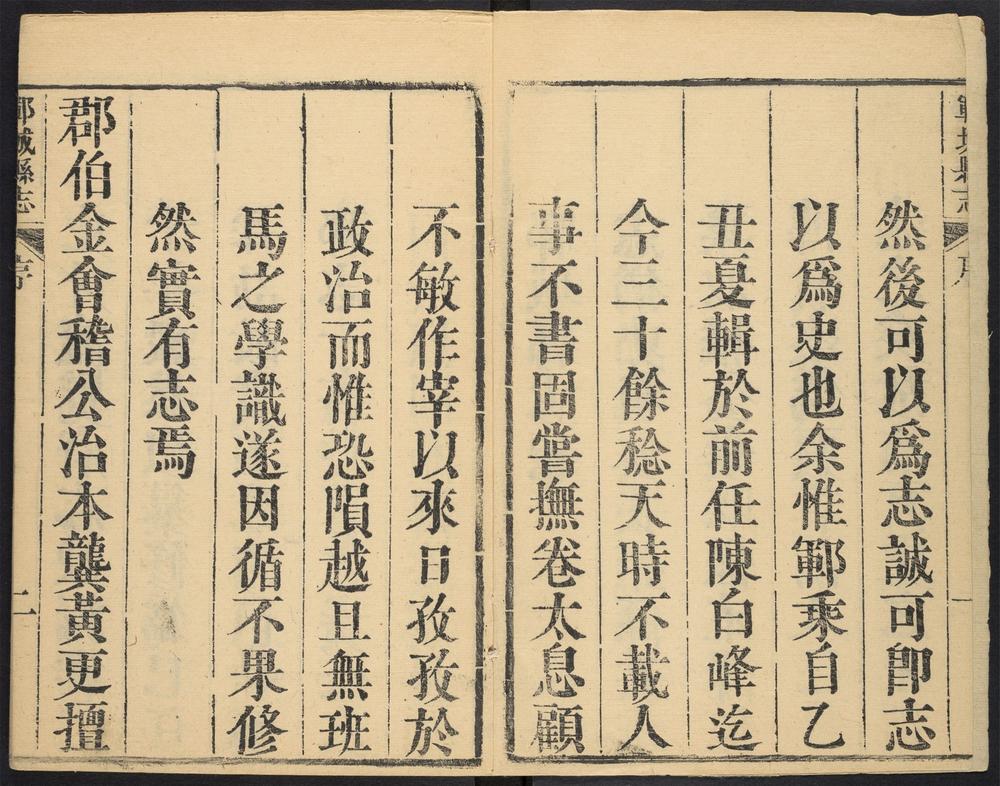 鄆城縣志 序
然後可以爲志誠可卽志
以爲史也余惟鄆乘自乙
丑夏輯於前任陳白峰迄
今三十餘稔天時不載人
事不書固嘗撫卷太息顧
不敏作宰以來日孜孜於
政治而惟恐隕越且無班
馬之學識遂因循不果修
然實有志焉
郡伯金會稽公治本龔黃更擅
鄆城縣志 序 二